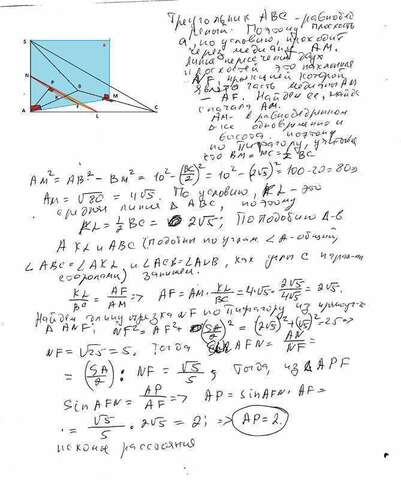 S
N
K
P
B
M
A
F
L
C
Треугольник ABC - равнобед
ренный. Поэтому плоскость
α, по условию, проходит
через медиану AM.
Линия пересечения двух
плоскостей это наклонная
NF, проекцией которой
часть медианы AM
- AF. Найдем её, найдя
сначала AM.
AM - в равнобедренном
Δ-ке одновременно и
высота, поэтому
по пифагору, учитывая
что BM=MC=½BC
AM² = AB² - BM² = 10² - (BC/2)² = 10² - (2√5)² = 100-20=80⇒
AM = √80 = 4√5. По условию, KL - это
средняя линия Δ ABC, поэтому
KL = ½ BC = 2√5; По подобию Δ-в
AKL и ABC (подобны по углам ∠A-общий,
∠ABC=∠AKL и ∠ACB=∠ALK, как углы с
сторонами) запишем.
KL/BC = AF/AM ⇒ AF = AM · KL/BC = 4√5 · 2√5/4√5 = 2√5.
Найдем длину отрезка NF по пифагору из
Δ ANF: NF² = AF² + (SA/2)² = (2√5)² + (√5)² = 25⇒
NF = √25 = 5. Тогда Sin AFN = AN/NF =
= (SA/2) : NF = √5/5; Тогда из Δ APF
Sin AFN = AP/AF ⇒ AP = sin AFN · AF =
= √5/5 · 2√5 = 2; ⇒ AP=2.
расстояния